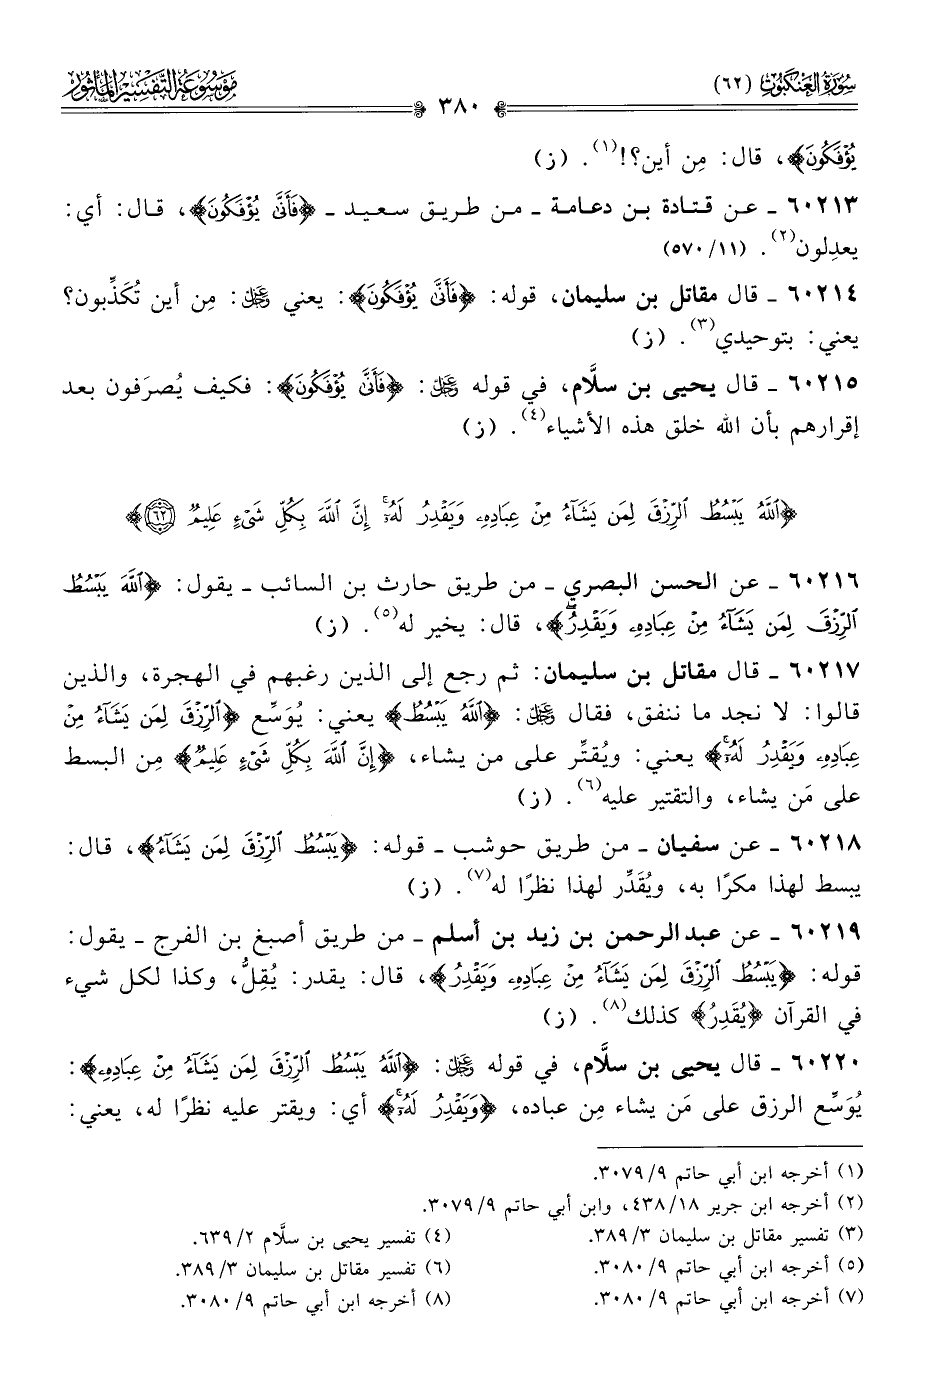 سورة العنكبوت (٦٢)
٣٨٠
موسوعة التفسير المأثور
يُؤْفَكُونَ﴾، قال: مِن أين؟!(١). (ز)
٦٠٢١٣ ـ عن قتادة بن دعامة ـ من طريق سعيد ـ ﴿فَأَنَّى يُؤْفَكُونَ﴾، قال: أي:
يعدِلون(٢). (٥٧٠/١١)
٦٠٢١٤ ـ قال مقاتل بن سليمان، قوله: ﴿فَأَنَّى يُؤْفَكُونَ﴾: يعني ﷻ: مِن أين تُكَذِّبون؟
يعني: بتوحيدي(٣). (ز)
٦٠٢١٥ ـ قال يحيى بن سلَّام، في قوله ﷻ: ﴿فَأَنَّى يُؤْفَكُونَ﴾: فكيف يُصرَفون بعد
إقرارهم بأن الله خلق هذه الأشياء(٤). (ز)
﴿ٱللَّهُ يَبْسُطُ ٱلرِّزْقَ لِمَن يَشَآءُ مِنْ عِبَادِهِۦ وَيَقْدِرُ لَهُۥٓ ۚ إِنَّ ٱللَّهَ بِكُلِّ شَىْءٍ عَلِيمٌ ٦٢﴾
٦٠٢١٦ ـ عن الحسن البصري ـ من طريق حارث بن السائب ـ يقول: ﴿ٱللَّهُ يَبْسُطُ
ٱلرِّزْقَ لِمَن يَشَآءُ مِنْ عِبَادِهِۦ وَيَقْدِرُ﴾، قال: يخير له(٥). (ز)
٦٠٢١٧ ـ قال مقاتل بن سليمان: ثم رجع إلى الذين رغبهم في الهجرة، والذين
قالوا: لا نجد ما ننفق، فقال ﷻ: ﴿ٱللَّهُ يَبْسُطُ﴾ يعني: يُوَسِّع ﴿ٱلرِّزْقَ لِمَن يَشَآءُ مِنْ
عِبَادِهِۦ وَيَقْدِرُ لَهُۥٓ ۚ﴾ يعني: ويُقتِّر على من يشاء، ﴿إِنَّ ٱللَّهَ بِكُلِّ شَىْءٍ عَلِيمٌ﴾ مِن البسط
على مَن يشاء، والتقتير عليه(٦). (ز)
٦٠٢١٨ ـ عن سفيان ـ من طريق حوشب ـ قوله: ﴿يَبْسُطُ ٱلرِّزْقَ لِمَن يَشَآءُ﴾، قال:
يبسط لهذا مكرًا به، ويُقَدِّر لهذا نظرًا له(٧). (ز)
٦٠٢١٩ ـ عن عبد الرحمن بن زيد بن أسلم ـ من طريق أصبغ بن الفرج ـ يقول:
قوله: ﴿يَبْسُطُ ٱلرِّزْقَ لِمَن يَشَآءُ مِنْ عِبَادِهِۦ وَيَقْدِرُ﴾، قال: يقدر: يُقِلُّ، وكذا لكل شيء
في القرآن ﴿يُقَدِرُ﴾ كذلك(٨). (ز)
٦٠٢٢٠ ـ قال يحيى بن سلَّام، في قوله ﷻ: ﴿ٱللَّهُ يَبْسُطُ ٱلرِّزْقَ لِمَن يَشَآءُ مِنْ عِبَادِهِۦ﴾:
يُوَسِّع الرزق على مَن يشاء مِن عباده، ﴿وَيَقْدِرُ لَهُۥٓ ۚ﴾ أي: ويقتر عليه نظرًا له، يعني:
(١) أخرجه ابن أبي حاتم ٣٠٧٩/٩.
(٢) أخرجه ابن جرير ٤٣٨/١٨، وابن أبي حاتم ٣٠٧٩/٩.
(٣) تفسير مقاتل بن سليمان ٣٨٩/٣.
(٤) تفسير يحيى بن سلَّام ٦٣٩/٢.
(٥) أخرجه ابن أبي حاتم ٣٠٨٠/٩.
(٦) تفسير مقاتل بن سليمان ٣٨٩/٣.
(٧) أخرجه ابن أبي حاتم ٣٠٨٠/٩.
(٨) أخرجه ابن أبي حاتم ٣٠٨٠/٩.